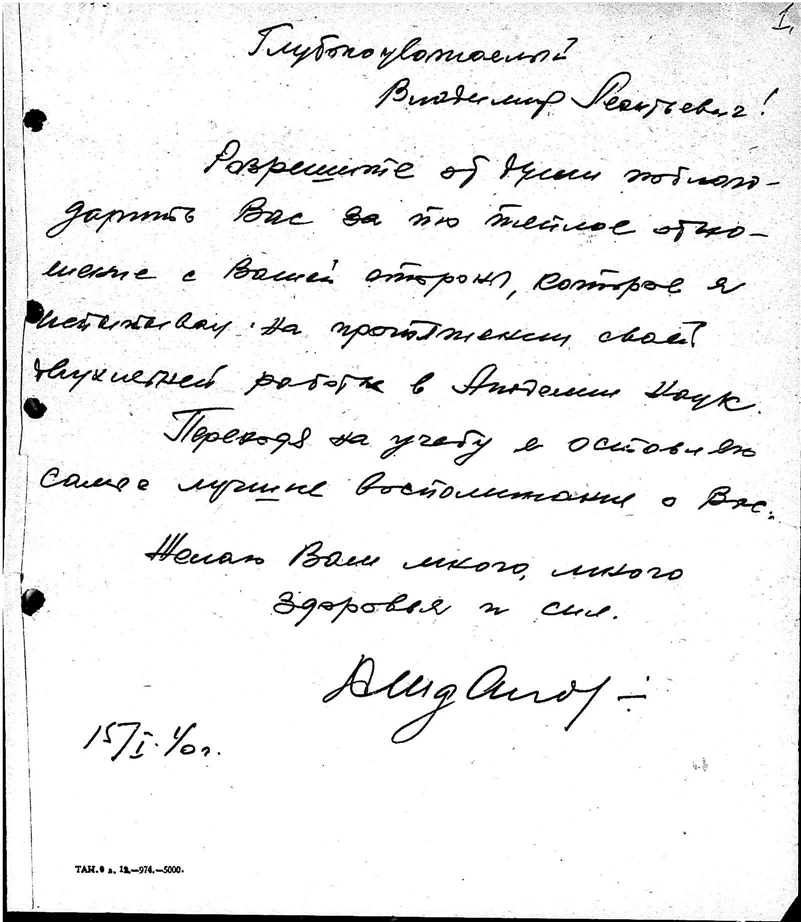 1.
Глубокоуважаемый
Владимир Леонтьевич!
Разрешите от души поблаго-
дарить Вас за то теплое отно-
шение с Вашей стороны, которое я
испытывал на протяжении своей
двухлетней работы в Академии Наук.
Переходя на учебу я оставляю
самые лучшие воспоминание о Вас.
Желаю Вам много, много
здоровья и сил.
15/I-40 г.
ТАН. 0 л. 12.—974.—5000.